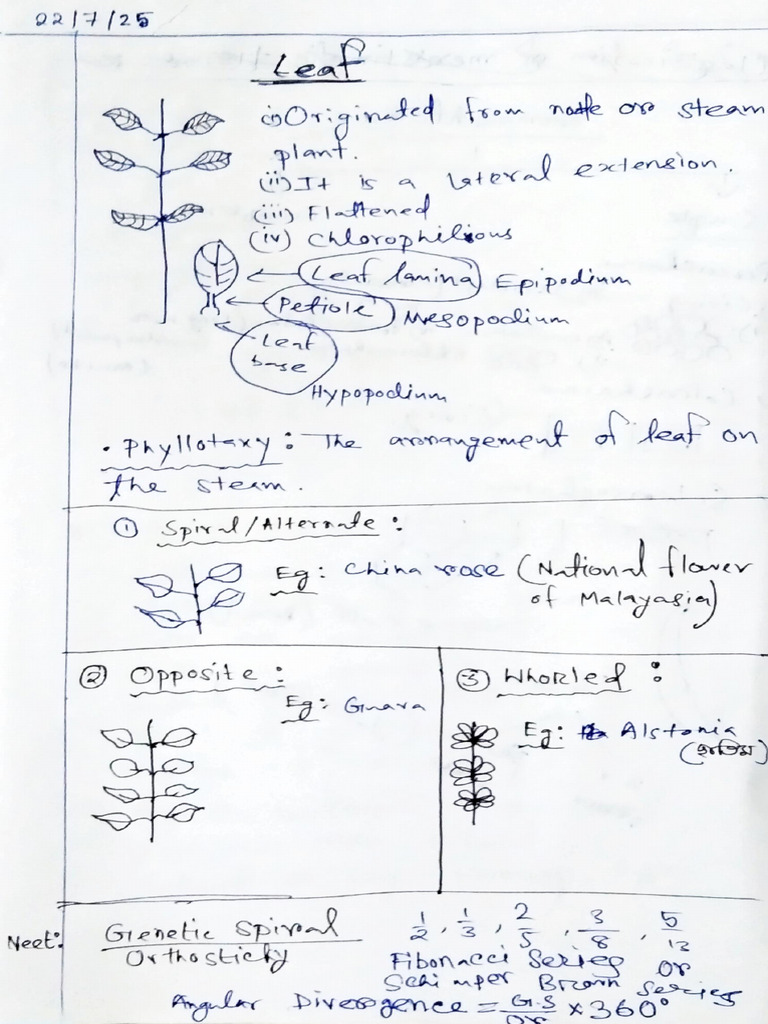 22/7/25
Leaf
(i) Originated from node or steam
plant.
(ii) It is a lateral extension.
(iii) Flattened
(iv) Chlorophilious
Leaf lamina Epipodium
Petiole Mesopodium
Leaf
base
Hypopodium
• Phyllotaxy: The arrangement of leaf on
the steam.
① Spiral/Alternate:
Eg: China rose (National flower
of Malayasia)
② Opposite:
Eg: Guava
③ Whorled:
Eg: Alstonia
Neet: Genetic Spiral 1/2, 1/3, 2/5, 3/8, 5/13
Orthosticky Fibonacci Series or
Schimper Brown Series
Angular Divergence = G.S/Or × 360°